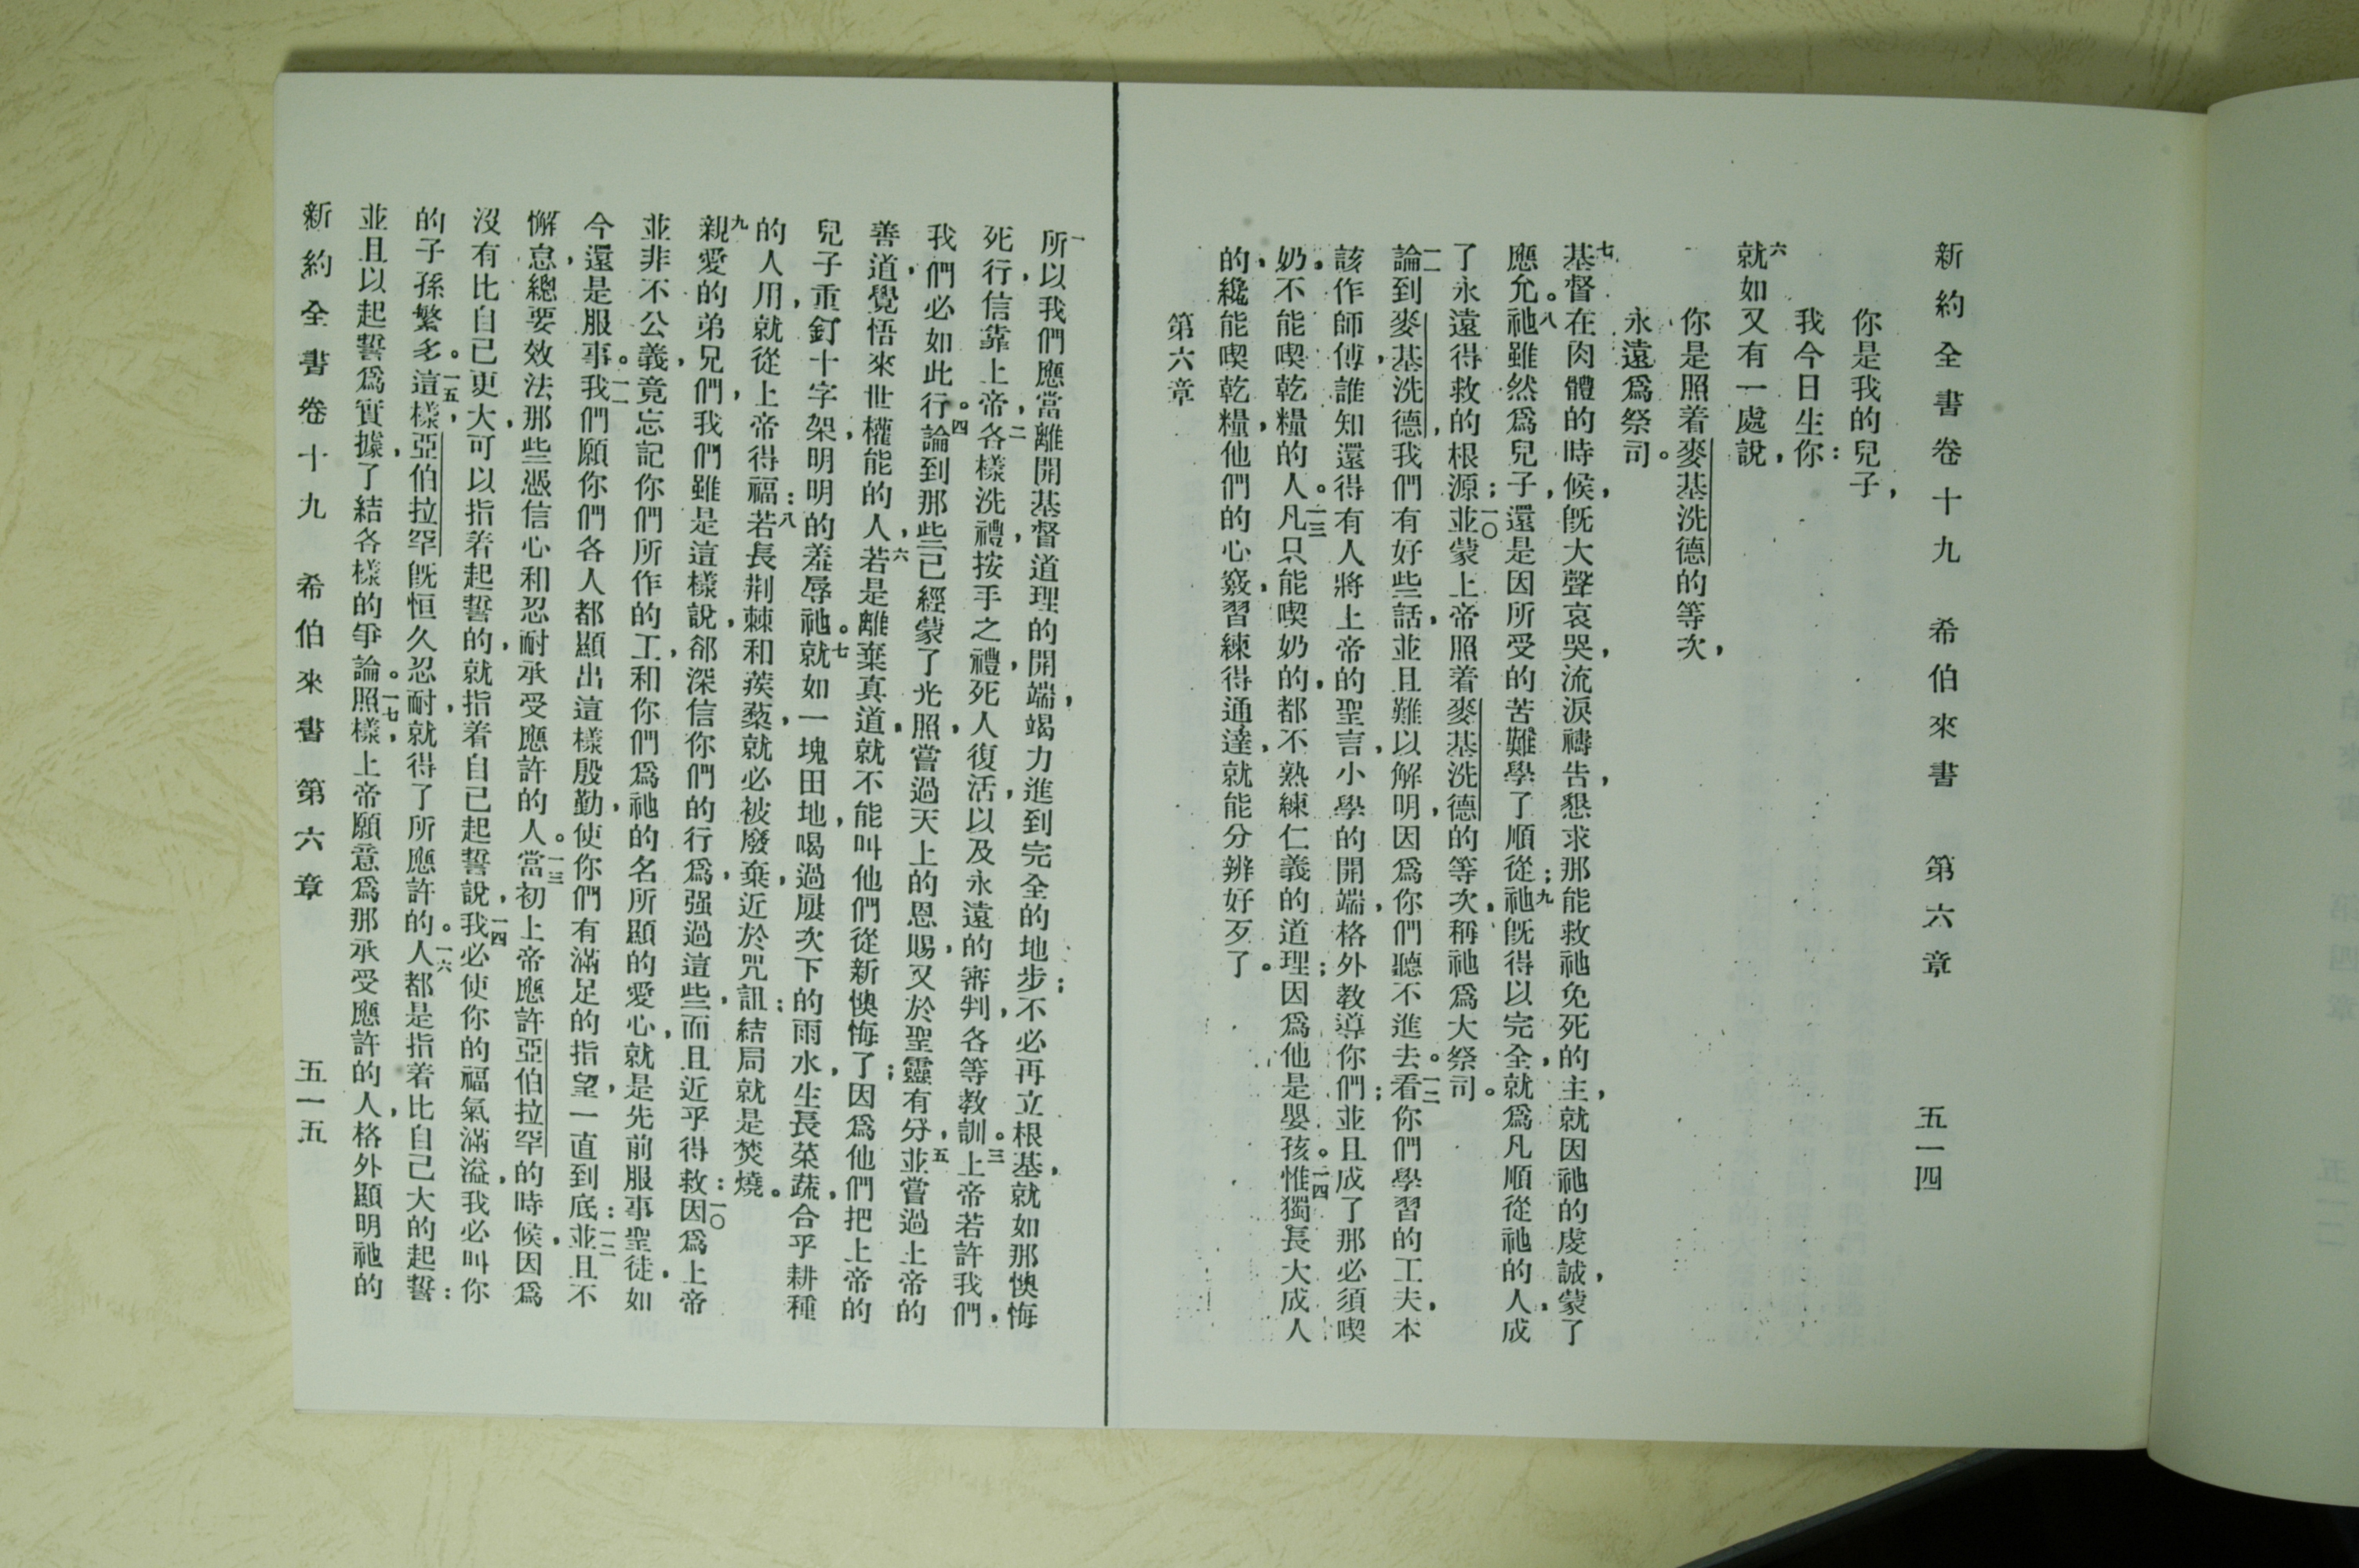 新約全書卷十九　希伯來書　第六章　五一四
你是我的兒子，
我今日生你：
六就如又有一處說，
你是照着麥基洗德的等次，
永遠爲祭司。
七基督在肉體的時候，旣大聲哀哭，流淚禱告，懇求那能救祂免死的主，就因祂的虔誠，蒙了
應允。八祂雖然爲兒子，還是因所受的苦難學了順從；九祂旣得以完全，就爲凡順從祂的人，成
了永遠得救的根源；一〇並蒙上帝照着麥基洗德的等次，稱祂爲大祭司。
一一論到麥基洗德，我們有好些話，並且難以解明，因爲你們聽不進去。一二看你們學習的工夫，本
該作師傅，誰知還得有人將上帝的聖言，小學的開端，格外教導你們；並且成了那必須喫
奶，不能喫乾糧的人。一三凡只能喫奶的，都不熟練仁義的道理；因爲他是嬰孩。一四惟獨長大成人
的，纔能喫乾糧，他們的心竅，習練得通達，就能分辨好歹了。
第六章
一所以我們應當離開基督道理的開端，竭力進到完全的地步；不必再立根基，就如那懊悔
死行，信靠上帝，二各樣洗禮，按手之禮，死人復活，以及永遠的審判，各等教訓。三上帝若許我們，
我們必如此行。四論到那些已經蒙了光照，嘗過天上的恩賜，又於聖靈有分，五並嘗過上帝的
善道，覺悟來世權能的人，六若是離棄真道，就不能叫他們從新懊悔了；因爲他們把上帝的
兒子重釘十字架，明明的羞辱祂。七就如一塊田地，喝過屢次下的雨水，生長菜蔬，合乎耕種
的人用，就從上帝得福：八若長荆棘和蒺藜，就必被廢棄，近於咒詛；結局就是焚燒。
九親愛的弟兄們，我們雖是這樣說，郤深信你們的行爲，强過這些，而且近乎得救：一〇因爲上帝
並非不公義，竟忘記你們所作的工，和你們爲祂的名所顯的愛心，就是先前服事聖徒，如
今還是服事。一一我們願你們各人都顯出這樣殷勤，使你們有滿足的指望，一直到底：一二並且不
懈怠，總要效法那些憑信心和忍耐，承受應許的人。一三當初上帝應許亞伯拉罕的時候，因爲
沒有比自己更大，可以指着起誓的，就指着自己起誓說，一四我必使你的福氣滿溢，我必叫你
的子孫繁多。一五這樣，亞伯拉罕旣恒久忍耐，就得了所應許的。一六人都是指着比自己大的起誓：
並且以起誓爲實據，了結各樣的爭論。一七照樣，上帝願意爲那承受應許的人，格外顯明祂的
新約全書卷十九　希伯來書　第六章　五一五